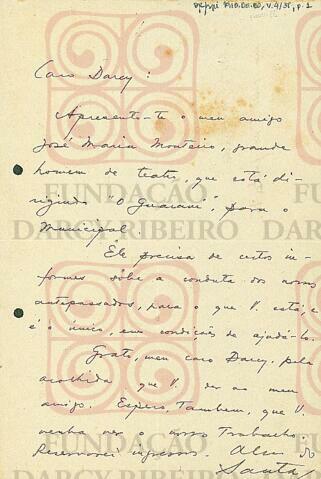 Caro Darcy:
Apresento-te o meu amigo
José Maria Monteiro, grande
homem de teatro, que está di-
rigindo "O Guarani", para o
Municipal
Êle precisa de certos in-
formes sôbre a conduta dos nossos
antepassados, para o que V. está, e
é o único, em condições de ajudá-lo.
Grato, meu caro Darcy, pela
acolhida que V. der ao meu
amigo. Espero, também, que V.
venha ver o nosso trabalho.
Reservarei ingressos.
Santa
FUNDAÇÃO
DARCY RIBEIRO
FUNDAÇÃO
DARCY RIBEIRO